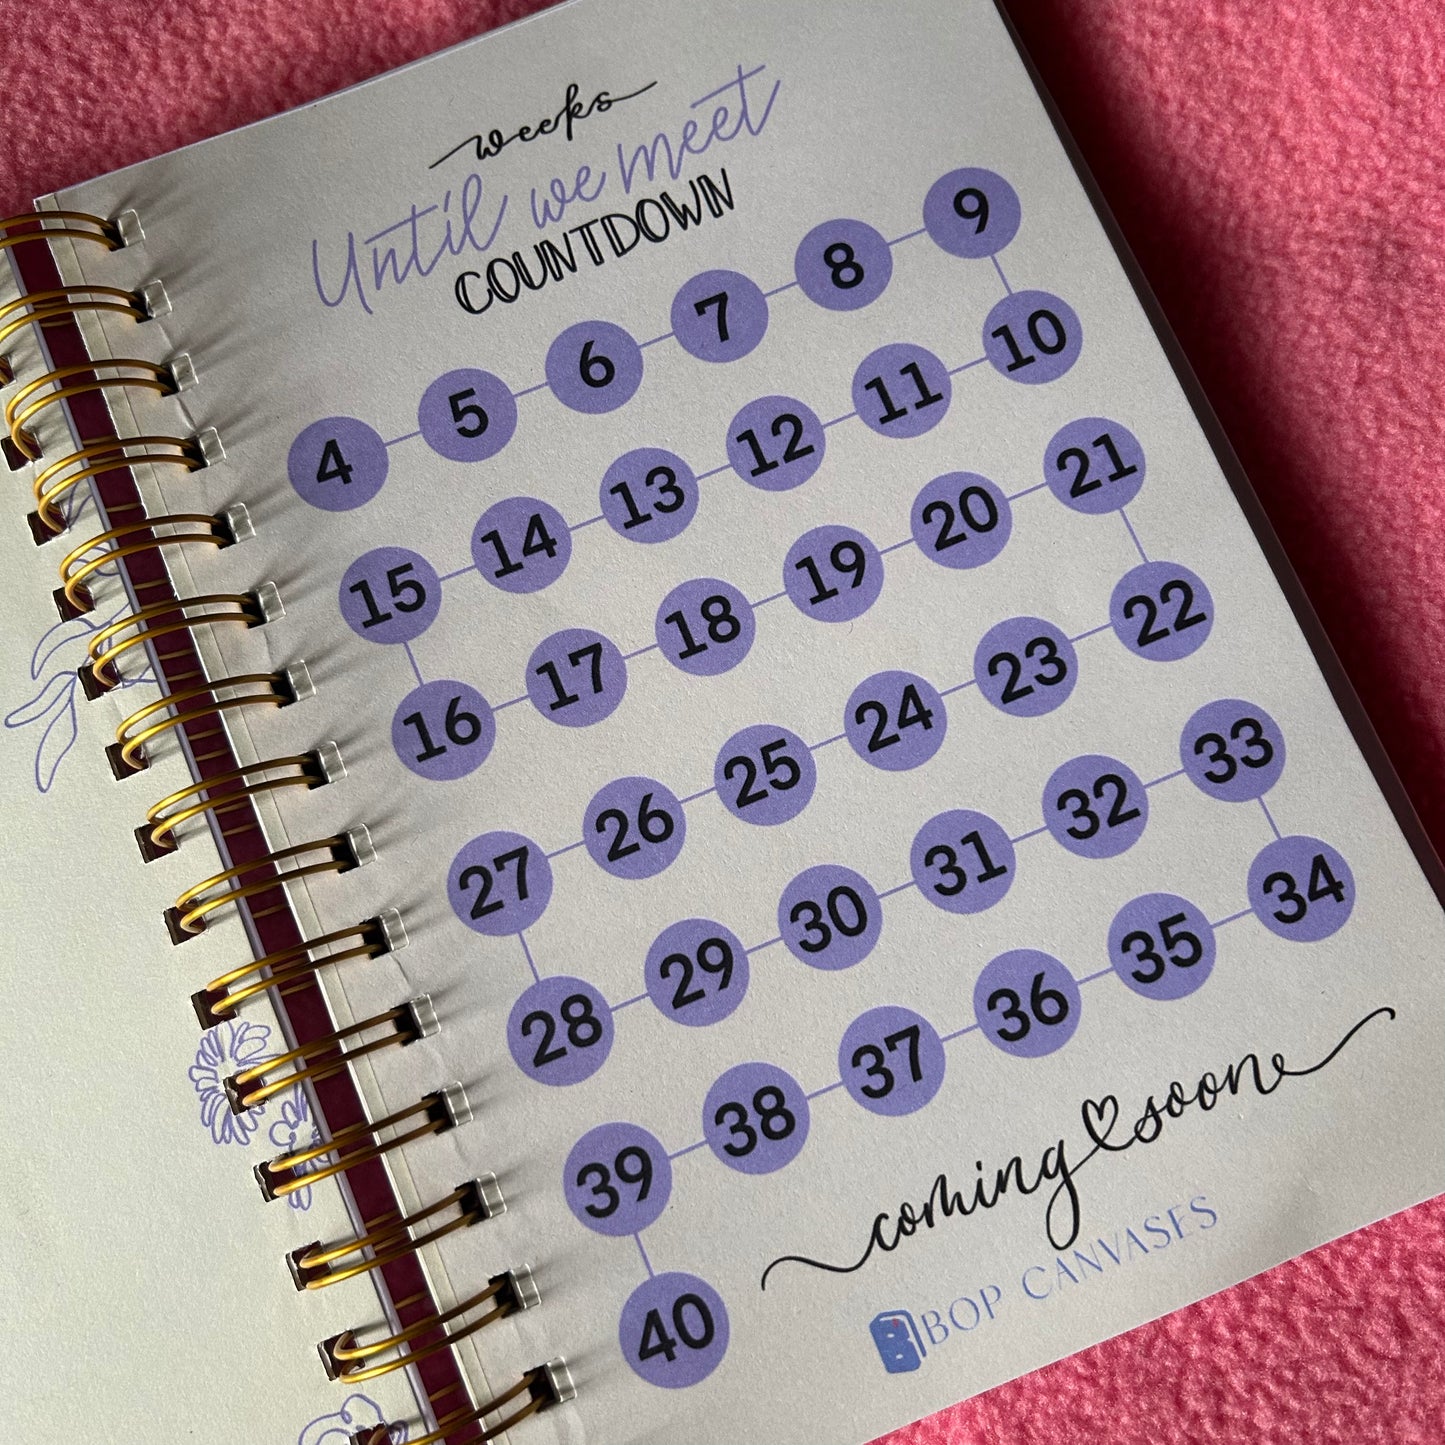 weeks
Until we meet
COUNTDOWN
4 5 6 7 8 9
15 14 13 12 11 10
16 17 18 19 20 21
27 26 25 24 23 22
28 29 30 31 32 33
39 38 37 36 35 34
40
coming soon
B BOP CANVASES